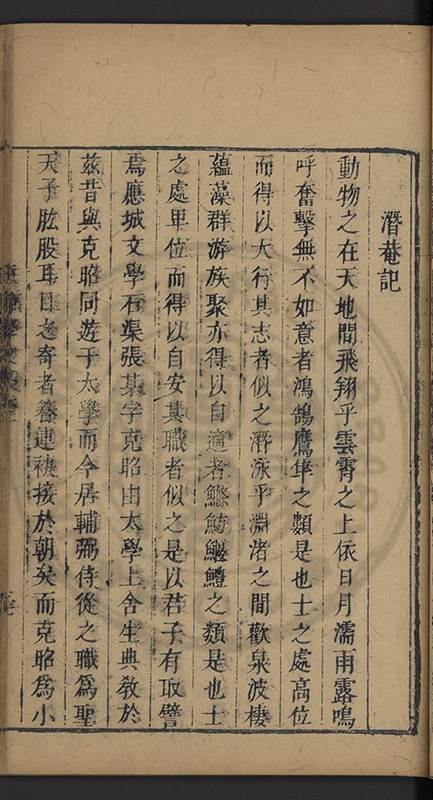 潛菴記
動物之在天地間飛翔乎雲霄之上依日月濡雨露鳴
呼奮擊無不如意者鴻鵠鷹隼之類是也士之處高位
而得以大行其志者似之潛泳乎淵渚之間歡泉波棲
蘊藻群游族聚亦得以自適者鰷魴鰋鱧之類是也士
之處卑位而得以自安其職者似之是以君子有取譬
焉應城文學石渠張某字克昭由太學上舍生典教於
玆昔與克昭同遊于太學而今居輔弼侍從之職爲聖
天子肱股耳目之寄者蕃連袂接於朝矣而克昭爲小